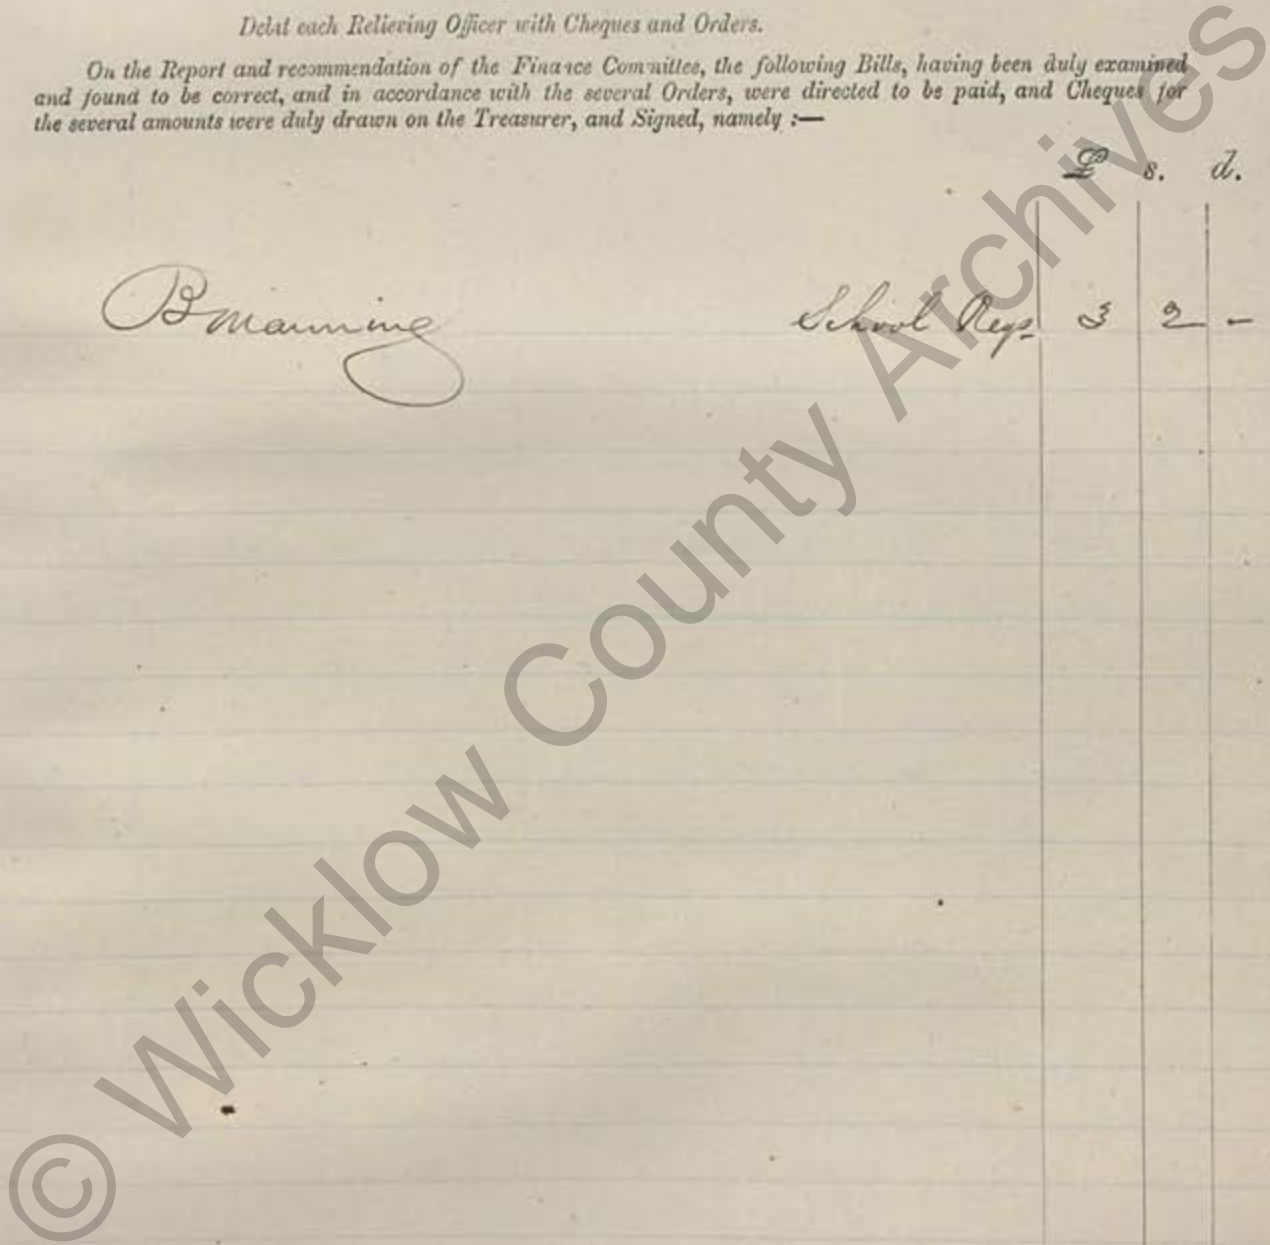 Debit each Relieving Officer with Cheques and Orders.
On the Report and recommendation of the Finance Committee, the following Bills, having been duly examined
and found to be correct, and in accordance with the several Orders, were directed to be paid, and Cheques for
the several amounts were duly drawn on the Treasurer, and Signed, namely :—
£ s. d.
B Manning School Reqs 3 2 –
© Wicklow County Archives